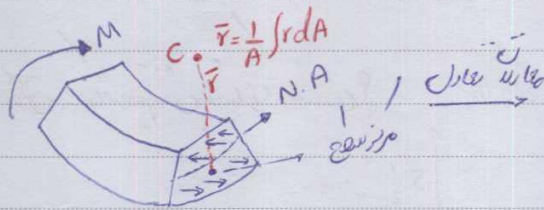 M
C r̄ = 1/A ∫ r dA
r̄
N.A
مرکز سطح
معادلات تعادل